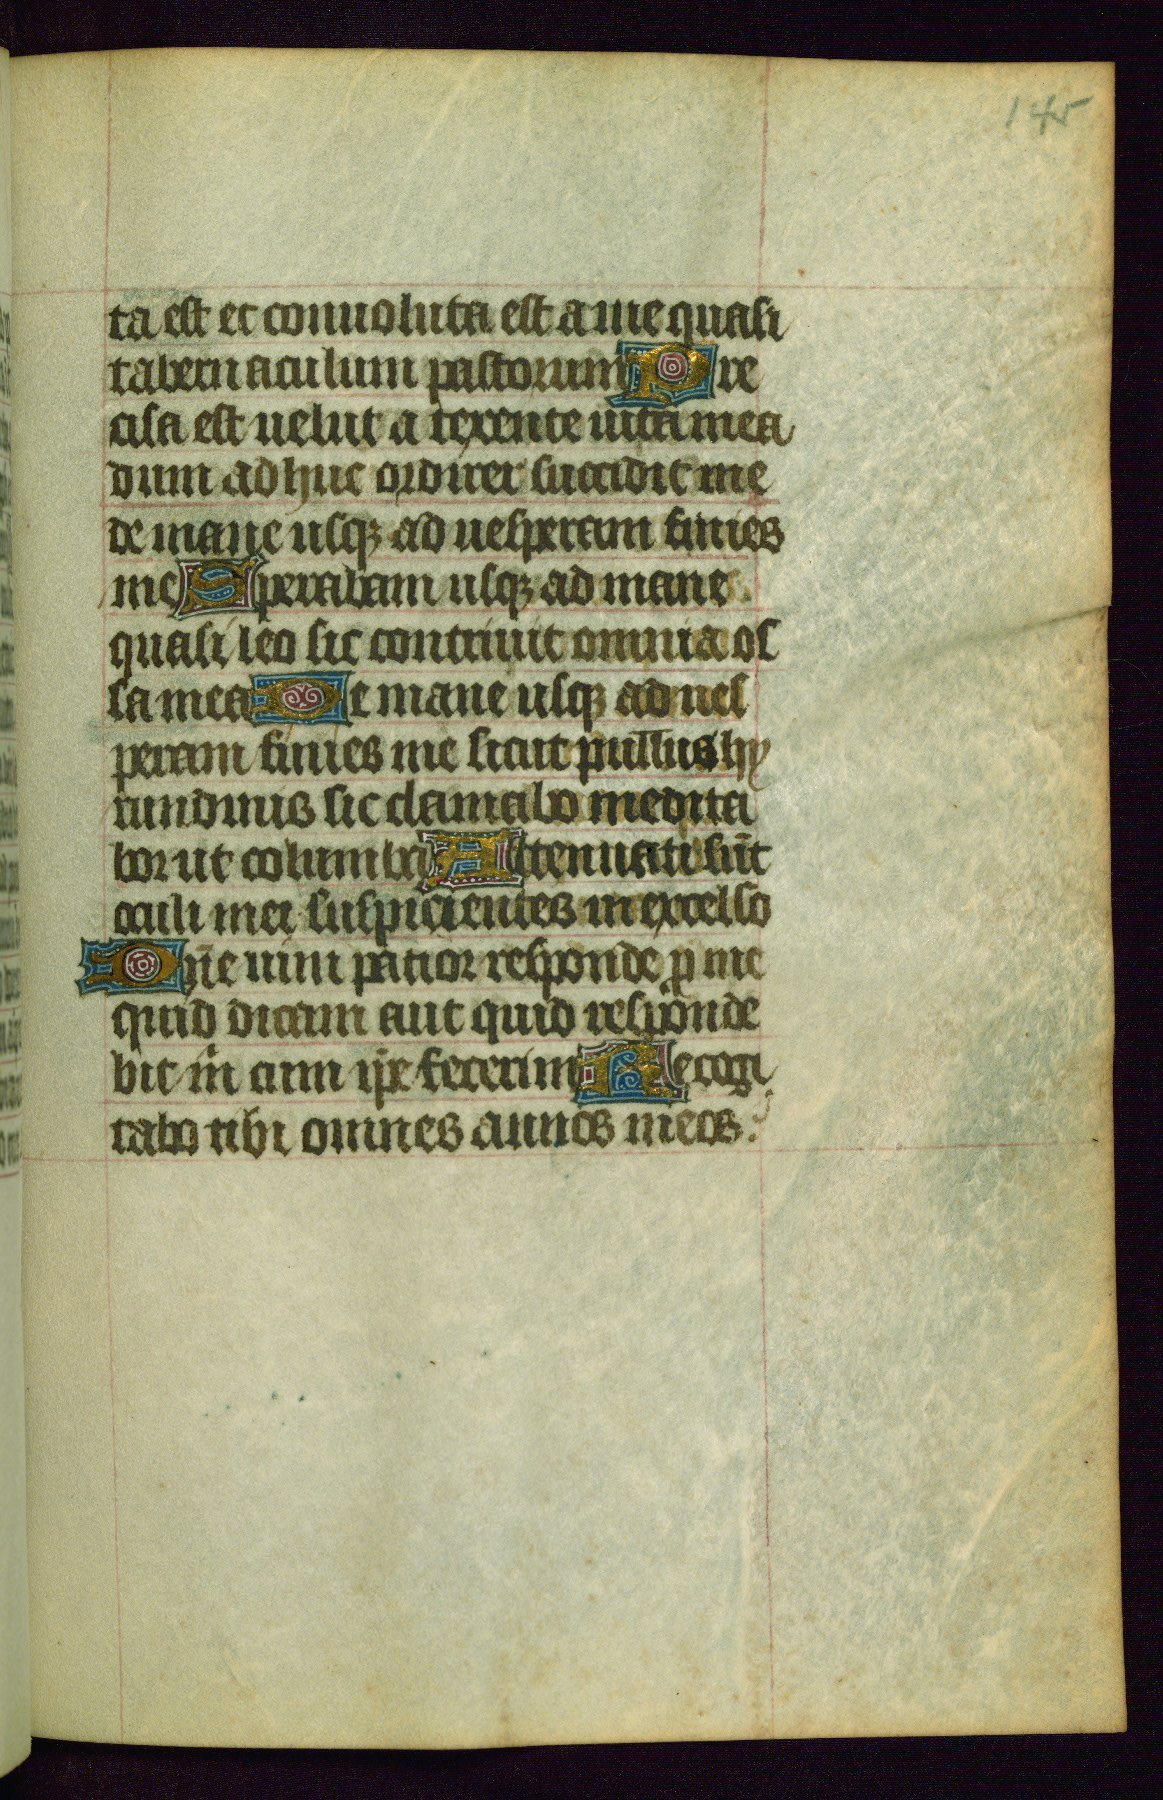 145
ta est et conuoluta est a me quasi
tabernaculum pastorum Pre
cisa est uelut a texente uita mea
dum adhuc ordirer succidit me
de mane usqꝫ ad uesperam finies
me Sperabam usqꝫ ad mane
quasi leo sic contriuit omnia os
sa mea De mane usqꝫ ad ues
peram finies me sicut pullus hy
rundinis sic clamabo medita
bor ut columba Attenuati sūt
oculi mei suspicientes in excelso
Dn̄e uim patior responde ꝓ me
quid dicam aut quid responde
bit m̄ cum ip̄e fecerim Recogi
tabo tibi omnes annos meos.